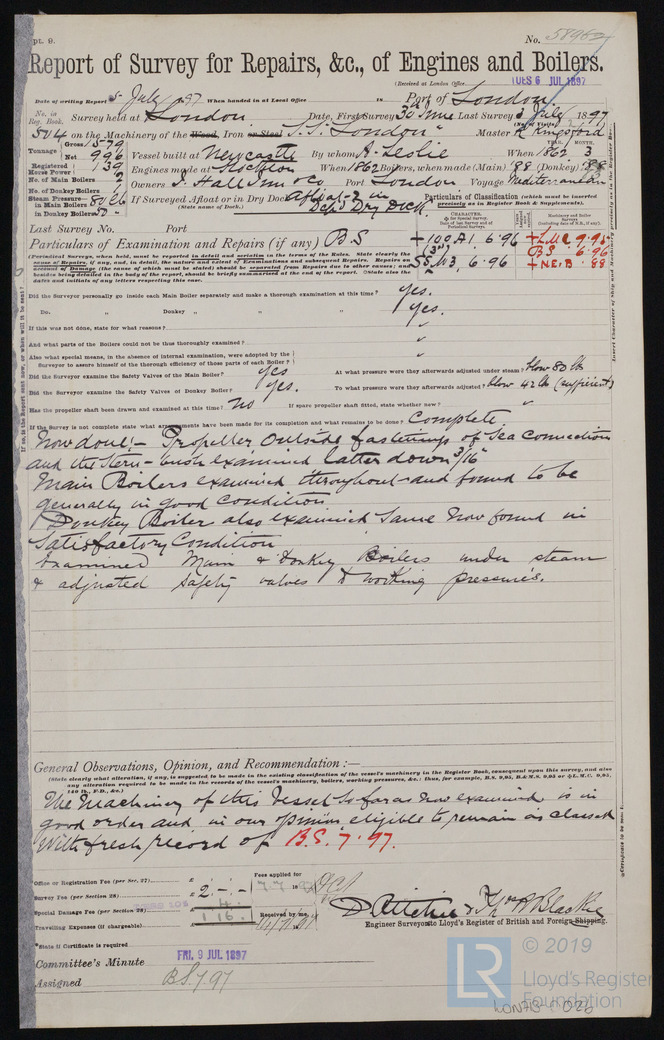 pt. 9.
No. 58962
Report of Survey for Repairs, &c., of Engines and Boilers.
(Received at London Office
TUES 6 JUL 1897
Date of writing Report 5 July 1897 When handed in at Local Office
Port of London
No. in Reg. Book. Survey held at London Date, First Survey 30 June Last Survey 3 July 1897
504 on the Machinery of the Wood, Iron or Steel S.S. "London" Master R Kingsford
Tonnage Gross 1579
Net 996
Vessel built at Newcastle By whom A. Leslie When 1862 3
Registered Horse Power
Engines made at Stockton When 1862 Boilers, when made (Main) '88 (Donkey) 88
No. of Main Boilers 2
No. of Donkey Boilers 1
Owners J. Hall Jun & Co Port London Voyage Mediterranean
Steam Pressure in Main Boilers 80
in Donkey Boilers
If Surveyed Afloat or in Dry Dock Afloat & in Dry Dock
(State name of Dock.)
Particulars of Classification (which must be inserted precisely as in Register Book & Supplements).
Last Survey No. Port
Particulars of Examination and Repairs (if any) B S
+ 100 A1. 6.96
SS. No 3, 6.96
+ L.M.C. 9.95
B S 6.96
+ N.E.B. 88
(Periodical Surveys, when held, must be reported in detail and seriatim in the terms of the Rules. State clearly the
dates and initials of any letters respecting this case.
Did the Surveyor personally go inside each Main Boiler separately and make a thorough examination at this time? Yes.
Do. " Donkey " " " Yes.
If this was not done, state for what reasons? "
And what parts of the Boilers could not be thus thoroughly examined? "
Also what special means, in the absence of internal examination, were adopted by the
Surveyor to assure himself of the thorough efficiency of those parts of each Boiler? "
Did the Surveyor examine the Safety Valves of the Main Boiler? Yes At what pressure were they afterwards adjusted under steam? blow 80 lb
Did the Surveyor examine the Safety Valves of Donkey Boiler? Yes. To what pressure were they afterwards adjusted? blow 42 lb (sufficient)
Has the propeller shaft been drawn and examined at this time? No If spare propeller shaft fitted, state whether new? "
If the Survey is not complete state what arrangements have been made for its completion and what remains to be done? Complete.
Now done:- Propeller outside fastenings of Sea Connections
and the Stern-bush examined latter down 3/16"
Main Boilers examined throughout and found to be
generally in good condition
Donkey Boiler also examined same now found in
Satisfactory Condition
Examined Main & Donkey Boilers under steam
& adjusted safety valves to working pressures.
General Observations, Opinion, and Recommendation:—
(State clearly what alteration, if any, is suggested to be made in the existing classification of the vessel's machinery in the Register Book, consequent upon this survey, and also
any alteration required to be made in the records of the vessel's machinery, boilers, working pressures, &c.: thus, for example, B.S. 9,95, B.&M.S. 9,95 or L.M.C. 9,95,
140 lb., F.D., &c.)
The Machinery of this Vessel so far as now examined is in
good order and in our opinion eligible to remain as classed
with fresh record of B.S. 7.97.
Office or Registration Fee (per Sec. 27). £
Fees applied for
Survey Fee (per Section 28) £ 2.-.-
Special Damage Fee (per Section 28) £
Received by me,
Travelling Expenses (if chargeable) £
D. Ritchie & Thos R Blackie
Engineer Surveyors to Lloyd's Register of British and Foreign Shipping.
State if Certificate is required
Committee's Minute FRI. 9 JUL 1897
Assigned B.S. 7.97
© 2019
LR
Lloyd's Register
Foundation